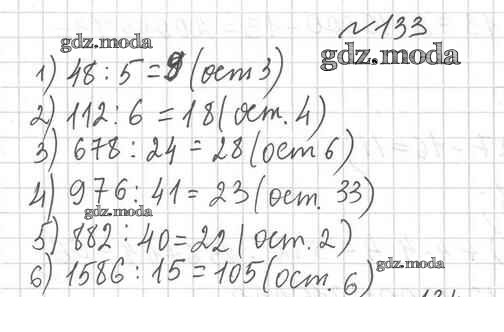 №133
gdz.moda
gdz.moda
1) 48 : 5 = 9 (ост 3)
2) 112 : 6 = 18 (ост. 4)
3) 678 : 24 = 28 (ост 6)
4) 976 : 41 = 23 (ост. 33)
gdz.moda
5) 882 : 40 = 22 (ост. 2)
6) 1586 : 15 = 105 (ост. 6)
gdz.moda